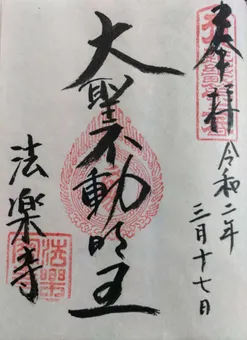 奉拝
令和二年
三月十七日
大聖不動明王
法楽寺